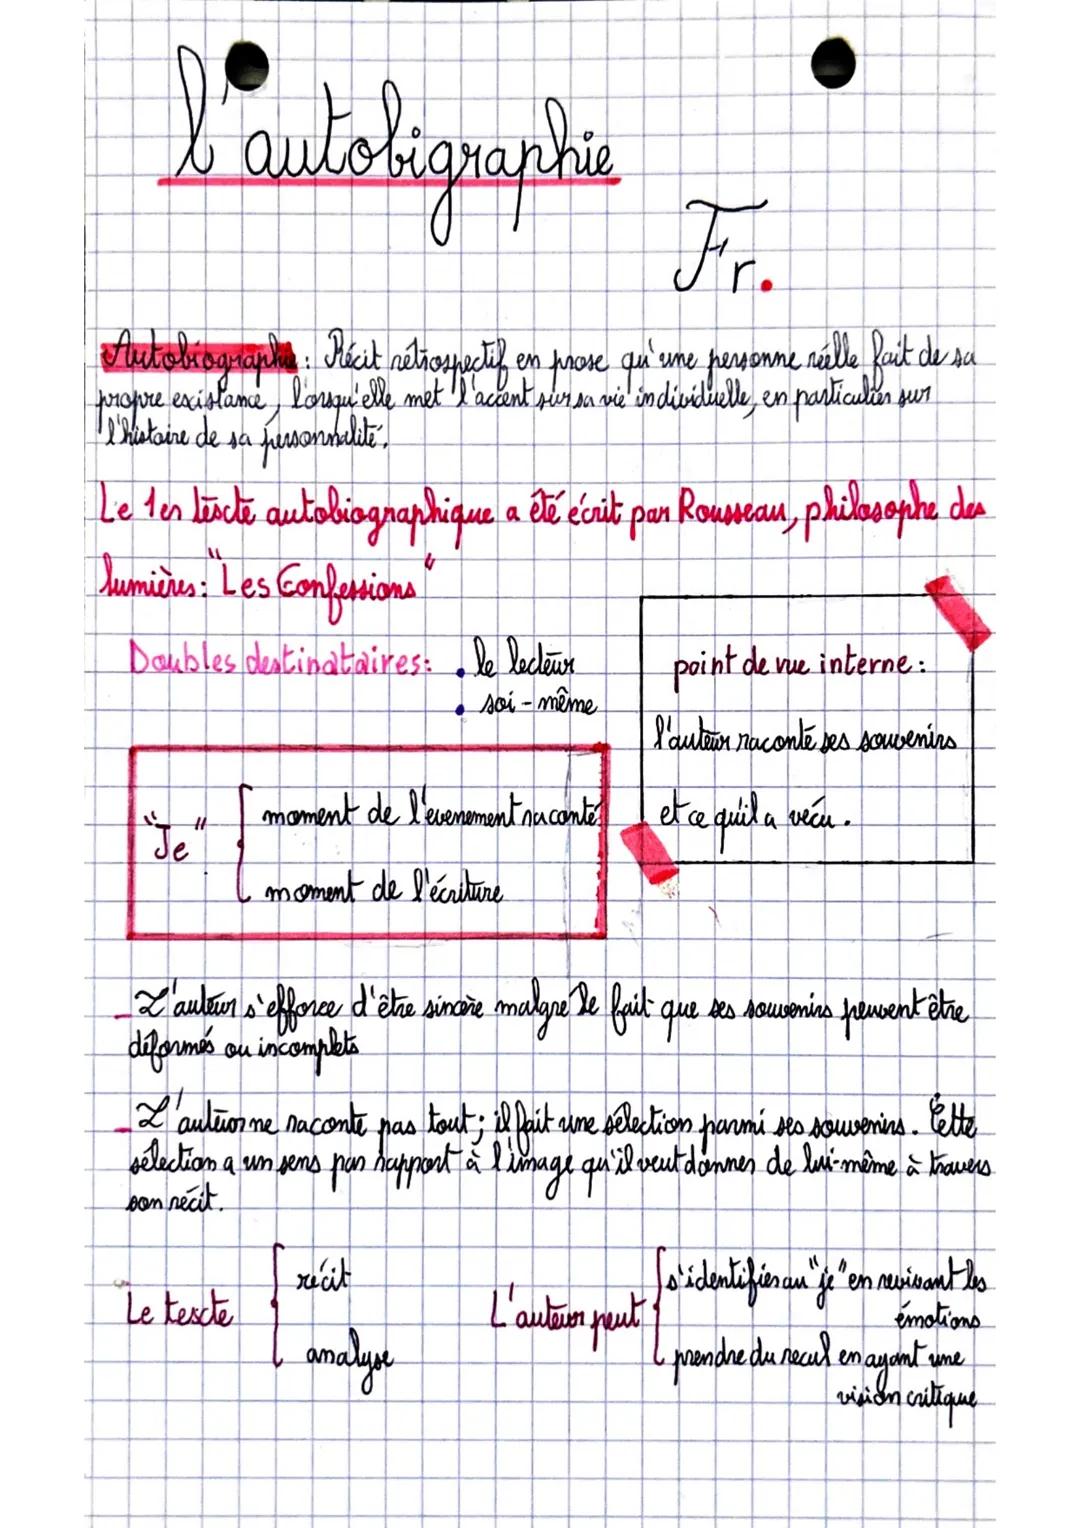 l'autobigraphie
Fr.
Autobiographie : Récit rétrospectif en prose qu'une personne réelle fait de sa
propre existance, lorsqu'elle met l'accent sur sa vie individuelle, en particulier sur
l'histoire de sa personnalité.
Le 1er texte autobiographique a été écrit par Rousseau, philosophe des
lumières : "Les Confessions"
Doubles destinataires : • le lecteur
• soi-même
point de vue interne :
l'auteur raconte ses souvenirs
et ce qu'il a vécu.
"Je"
moment de l'évenement raconté
moment de l'écriture
- L'auteur s'efforce d'être sincère malgré le fait que ses souvenirs peuvent être
déformés ou incomplets
- L'auteur ne raconte pas tout ; il fait une sélection parmi ses souvenirs. Cette
sélection a un sens par rapport à l'image qu'il veut donner de lui-même à travers
son récit.
Le texte
récit
analyse
L'auteur peut
s'identifier au "je" en revivant les
émotions
prendre du recul en ayant une
vision critique